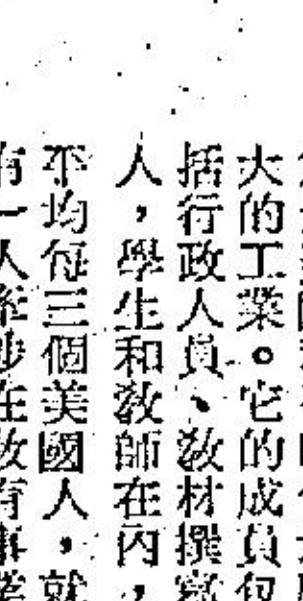 大的工業。它的成員包
括行政人員、教材撰寫
人，學生和教師在內，
平均每三個美國人，就
有一人牽涉在教育事業